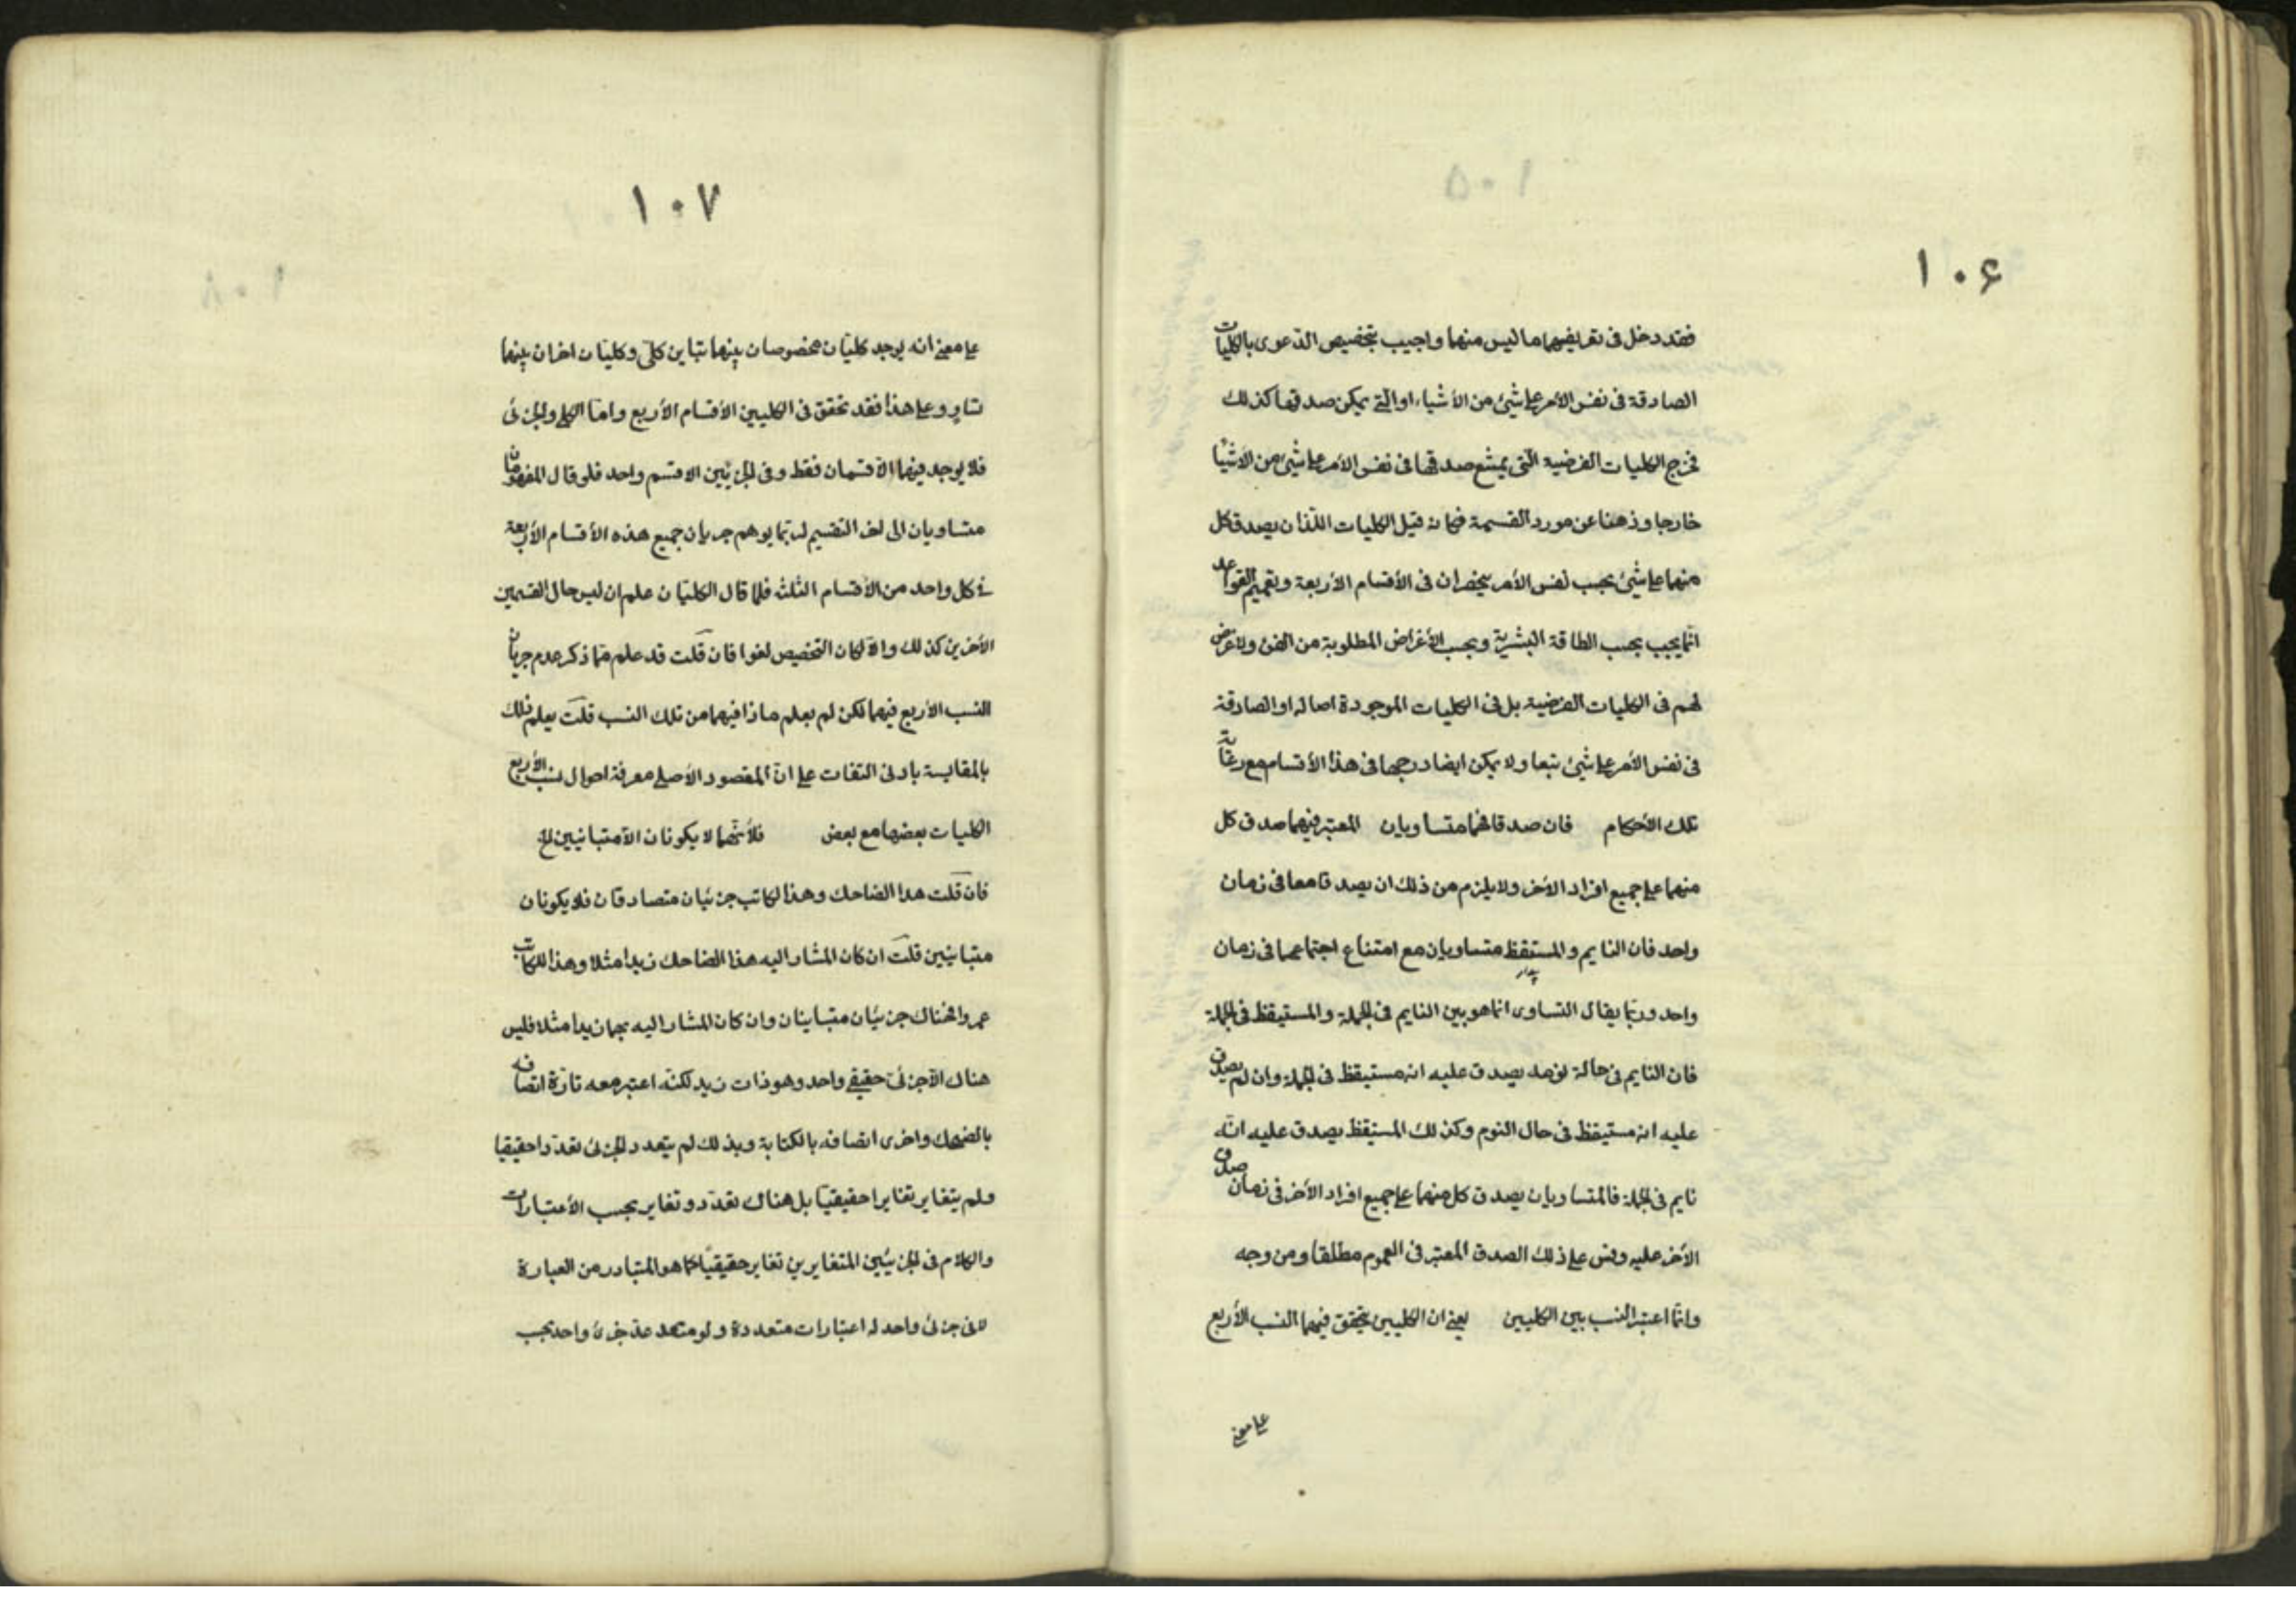 ١٠۶
فقد دخل فى تعريفهما ما ليس منهما واجيب بتخصيص الدّعوى بالكليات
الصادقة فى نفس الأمر على شيئ من الأشياء او الّتى يمكن صدقها كذلك
فخرج الكليات الفرضية الّتى يمتنع صدقها فى نفس الأمر على شيئ من الأشيا
خارجا وذهنا عن مورد القسمة فكانه قيل الكليات اللّذان يصدق كل
منهما على شيئ بحسب نفس الأمر ينحصران فى الأقسام الأربعة وتعميم القواعد
انّما يجب بحسب الطاقة البشرية وبحسب الأغراض المطلوبة من الفن ولا غرض
لهم فى الكليات الفرضية بل فى الكليات الموجودة اصالة او الصادقة
فى نفس الأمر على شيئ تبعا ولا يمكن ايضا درجها فى هذا الأقسام مع رعاية
تلك الأحكام فان صدقا فهما متساويان المعتبر فيهما صدق كل
منهما على جميع افراد الأخر ولا يلزم من ذلك ان يصدقا معا فى زمان
واحد فان النايم والمستقظ متساويان مع امتناع اجتماعهما فى زمان
واحد وربّما يقال التساوى انما هو بين النايم فى الجملة والمستيقظ فى الجملة
فان النايم فى حالة نومه يصدق عليه انه مستيقظ فى الجملة وان لم يصدق
عليه انه مستيقظ فى حال النوم وكذلك المستيقظ يصدق عليه انّه
نايم فى الجملة فالمتساويان يصدق كل منهما على جميع افراد الأخر فى زمان صدق
الأخر عليه وقس على ذلك الصدق المعتبر فى العموم مطلقا ومن وجه
وانّما اعتبر النسب بين الكليين يعنى ان الكليين يتحقق فيهما النسب الأربع
على معنى
١٠٧
على معنى انه يوجد كليّان مخصوصان بينهما تباين كلّى وكليّان اخران بينهما
تساوٍ وعلى هذا فقد تحقق فى الكليين الأقسام الأربع وامّا الكلى والجزئى
فلا يوجد فيهما الّا قسمان فقط وفى الجزئيين الا قسم واحد فلو قال المفهومان
متساويان الى اخر التقسيم لربّما يوهم جريان جميع هذه الأقسام الأربعة
فى كل واحد من الأقسام الثلث فلمّا قال الكليّان علم ان ليس حال القسمين
الأخرين كذلك والّا لكان التخصيص لغوا فان قلت قد علم ممّا ذكر عدم جريان
النسب الأربع فيهما لكن لم يعلم ماذا فيهما من تلك النسب قلت يعلم ذلك
بالمقايسة بادنى التفات على انّ المقصود الأصلى معرفة احوال نسب الأربع
الكليات بعضها مع بعض فلأنّهما لا يكونان الّا متبانيين الخ
فان قلت هذا الضاحك وهذا الكاتب جزئيان متصادقان فلا يكونان
متبانيين قلت ان كان المشار اليه هذا الضاحك زيدا مثلا وهذا الكاتب
عمروا فهناك جزئيّان متباينان وان كان المشار اليه بهما زيدا مثلا فليس
هناك الّا جزئى حقيقى واحد وهو ذات زيد لكنّه اعتبر معه تارة اتصافه
بالضحك واخرى اتصافه بالكتابة وبذلك لم يتعدد الجزئى تعدّدا حقيقيا
ولم يتغاير تغايرا حقيقيّا بل هناك تعدّد وتغاير بحسب الأعتبارات
والكلام فى الجزئيّين المتغايرين تغاير حقيقيّا كما هو المتبادر من العبارة
لا فى جزئى واحد له اعتبارات متعددة ولو عدّ جزئى واحد بحسب